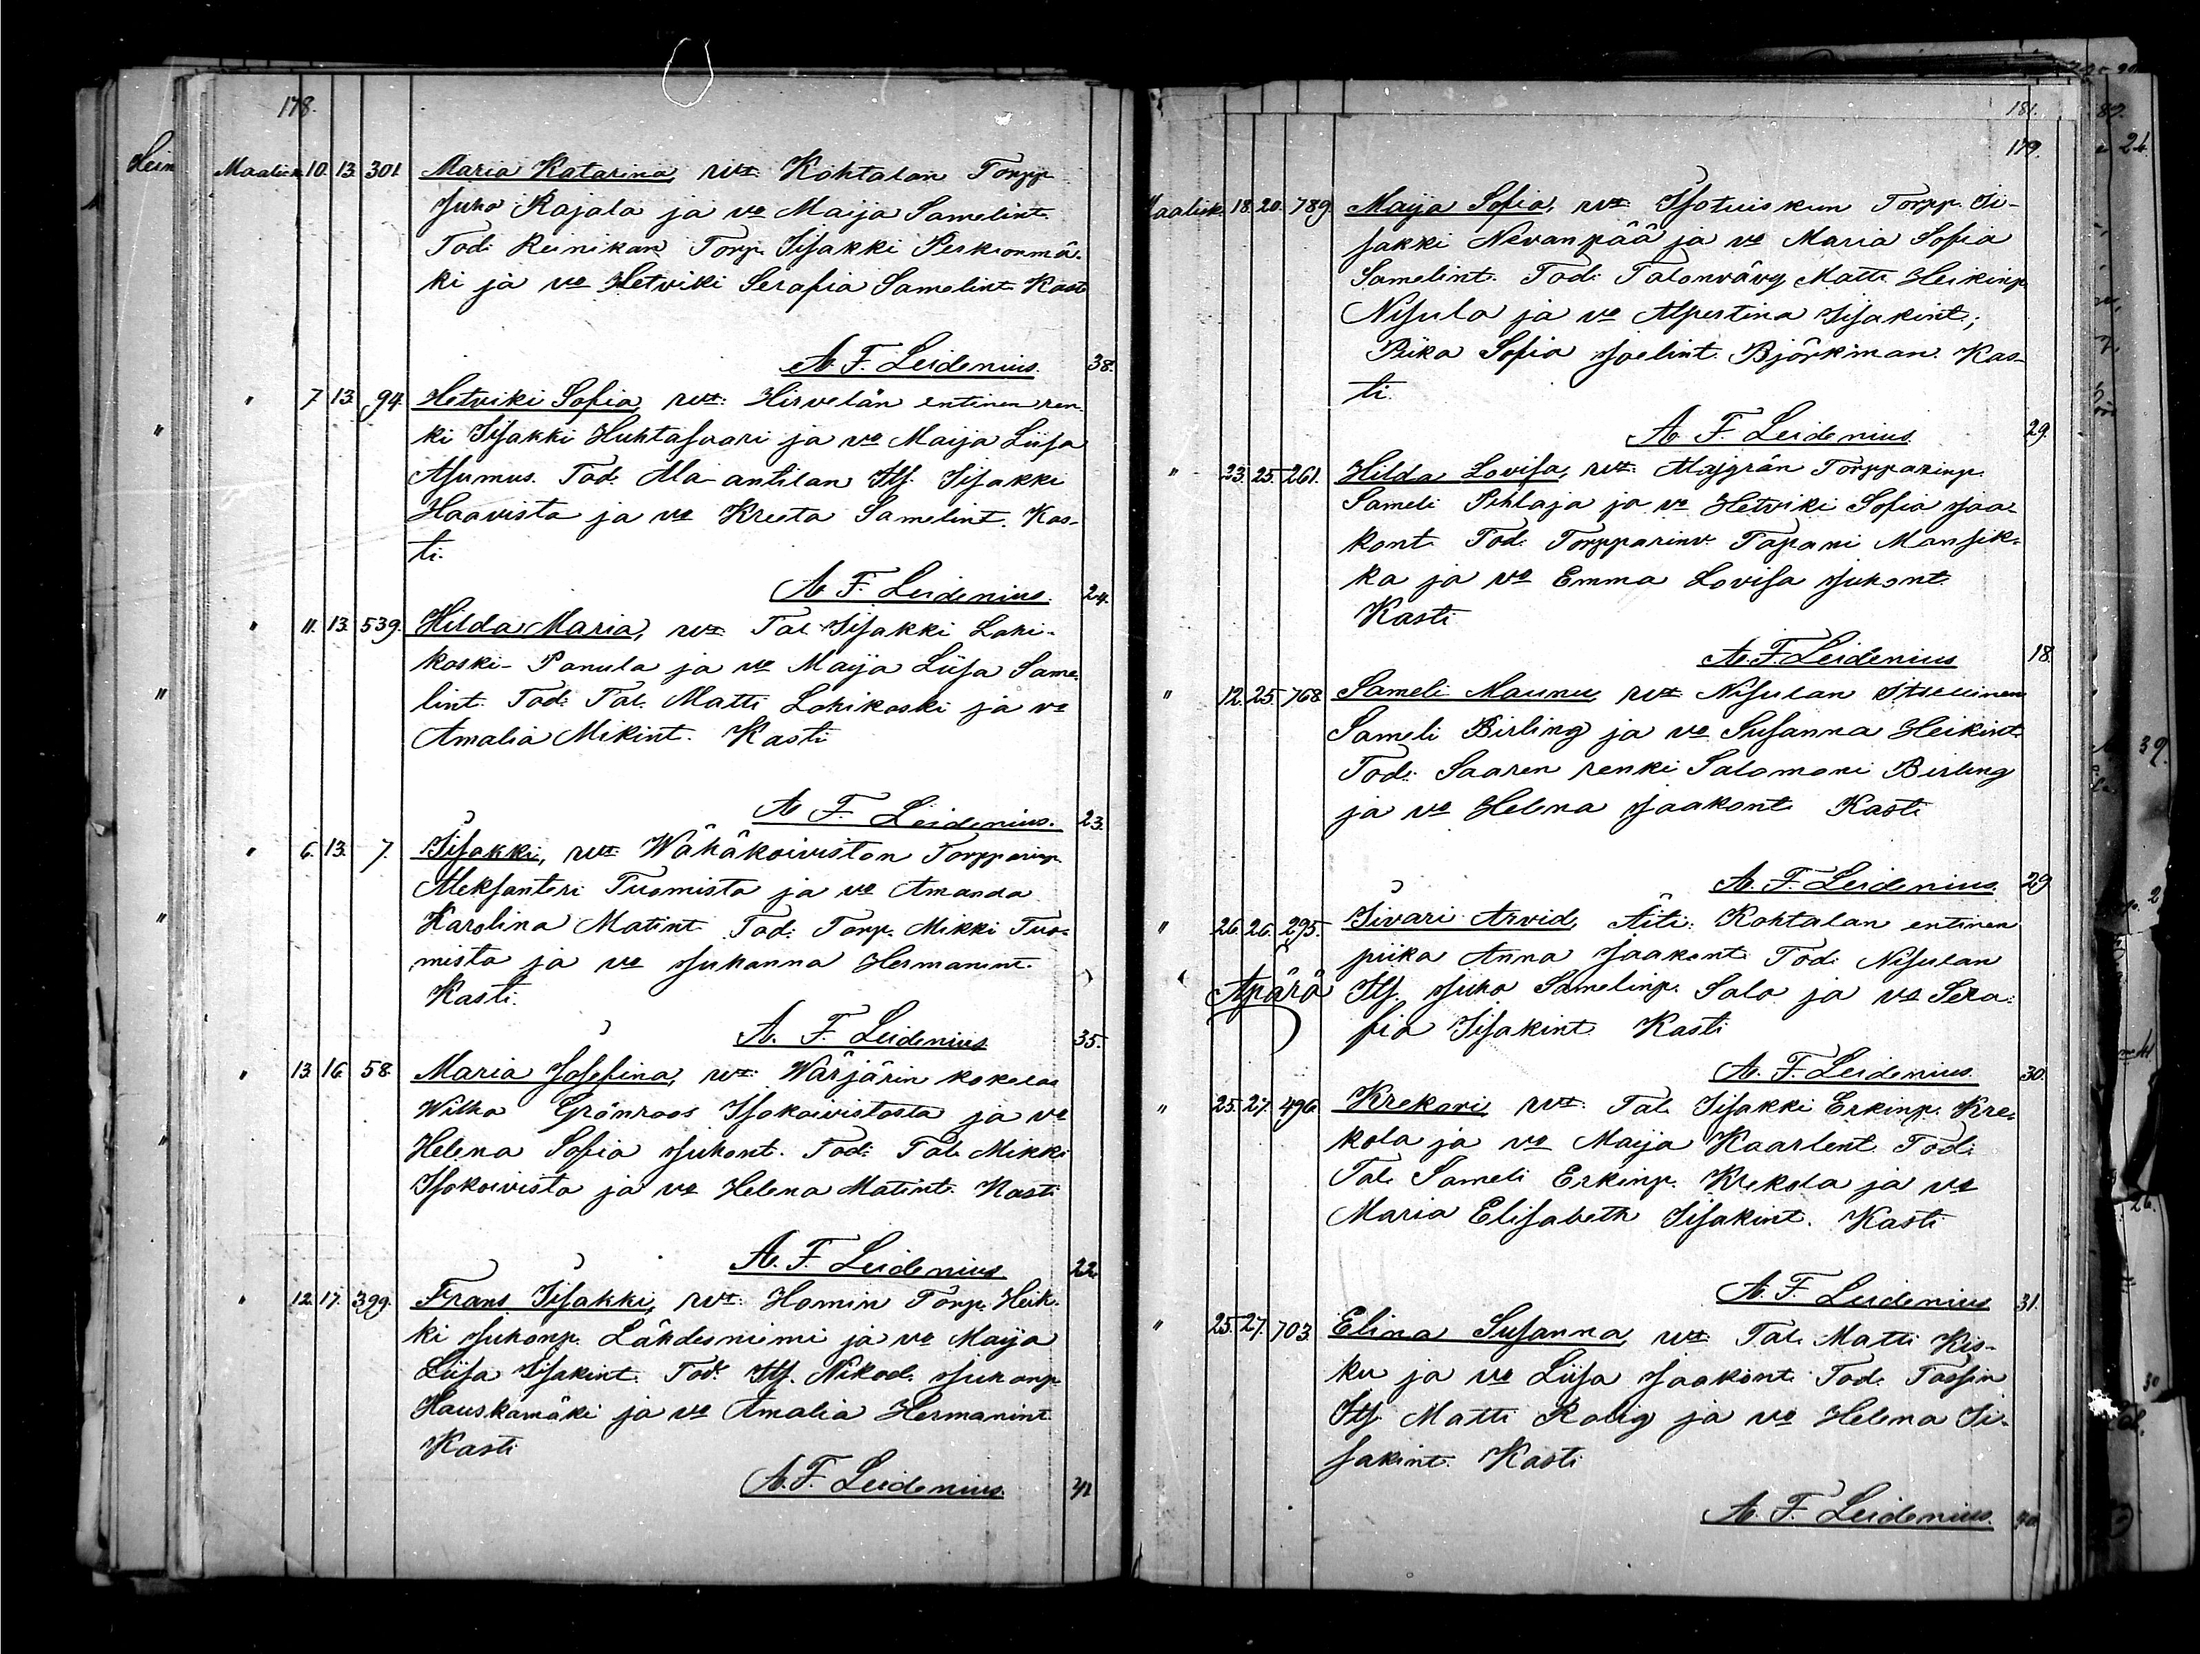 178.
Maalisk. 10. 13. 301. Maria Katarina, vvt: Kohtalan Torpp.
Juho Rajala ja vo Maija Samelint.
Tod: Reinikan Torp. Iisakki Perkionmä-
ki ja vo Hetviki Serafia Samelint. Kasti
A. F. Leidenius. 38.
" 7. 13. 94. Hetviki Sofia, vvt: Hirvelän entinen ren-
ki Iisakki Huhtasaari ja vo Maija Liisa
Asumus. Tod. Ala-antilan Its. Iisakki
Haavista ja vo Kreeta Samelint. Kas-
ti.
A. F. Leidenius. 24.
" 11. 13. 539. Hilda Maria, vvt: Tal. Iisakki Lohi-
koski-Panula ja vo Maija Liisa Same-
lint. Tod: Tal. Matti Lohikoski ja vo
Amalia Mikint. Kasti
A. F. Leidenius. 23.
" 6. 13. 7. Iisakki, vvt: Wähäkoiviston Torpparinp.
Aleksanteri Tuomista ja vo Amanda
Karolina Matint. Tod: Torp. Mikki Tuo-
mista ja vo Juhanna Hermanint.
Kasti.
A. F. Leidenius 35.
" 13. 16. 58. Maria Josefina, vvt: Wärjärin kokelas
Wilho Grönroos Isokoivistosta ja vo
Helena Sofia Juhont. Tod: Tal. Mikki
Isokoivisto ja vo Helena Matint. Kasti
A. F. Leidenius. 22
" 12. 17. 399. Frans Iisakki, vvt: Homin Torp. Heik-
ki Juhonp. Lähdesniemi ja vo Maija
Liisa Iisakint. Tod: Its. Nikod. Juhonp.
Hauskamäki ja vo Amalia Hermanint.
Kasti
A. F. Leidenius. 41
181.
179.
Maalisk. 18. 20. 789. Maija Sofia, vvt: Isotuiskun Torpp. Ii-
sakki Nevanpää ja vo Maria Sofia
Samelint. Tod: Talonvävy Matti Heikinp.
Nisula ja vo Alpertina Iisakint.;
Piika Sofia Joelint. Björkman. Kas-
ti.
A. F. Leidenius. 29.
" 23. 25. 261. Hilda Lovisa, vvt: Torpparinp.
Sameli Pihlaja ja vo Hetviki Sofia Jaa-
kont. Tod: Torpparinv. Tapani Mansik-
ka ja vo Emma Lovisa Juhont.
Kasti
A. F. Leidenius 18.
" 12. 25. 768. Sameli Maunu, vvt: Nisulan Itsellinen
Sameli Birling ja vo Susanna Heikint.
Tod: Saaren renki Salomoni Birling
ja vo Helena Jaakont. Kasti
A. F. Leidenius. 29
" 26. 26. 295. Iivari Arvid, Äiti: Kohtalan entinen
piika Anna Jaakont. Tod: Nisulan
Äpärä Its. Juho Samelinp. Salo ja vo Sera-
fia Iisakint. Kasti
A. F. Leidenius. 30.
" 25. 27. 496. Krekori, vvt: Tal. Iisakki Erkinp. Kre-
kola ja vo Maija Kaarlent. Tod:
Tal. Sameli Erkinp. Krekola ja vo
Maria Elisabeth Iisakint. Kasti
A. F. Leidenius 31.
" 25. 27. 703. Elina Susanna, vvt: Tal. Matti Kis-
ku ja vo Liisa Jaakont. Tod: Tassin
Its. Matti Rolig ja vo Helena Ii-
sakint. Kasti
A. F. Leidenius. 40.